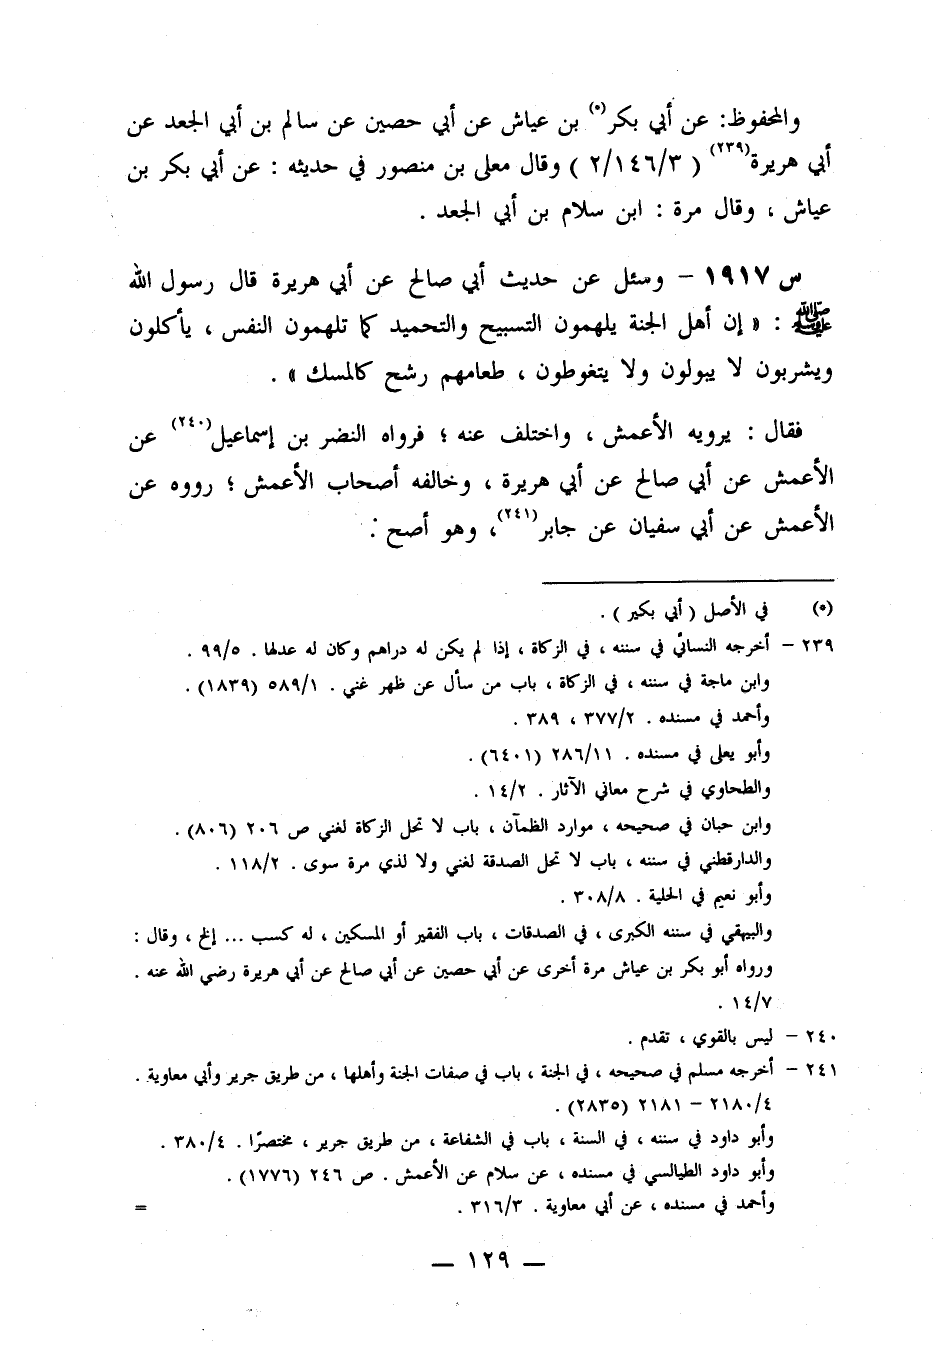 والمحفوظ: عن أبي بكر(٥) بن عياش عن أبي حصين عن سالم بن أبي الجعد عن
أبي هريرة(٢٣٩) ( ٢/١٤٦/٣ ) وقال معلى بن منصور في حديثه : عن أبي بكر بن
عياش ، وقال مرة : ابن سلام بن أبي الجعد .
س ١٩١٧ – وسئل عن حديث أبي صالح عن أبي هريرة قال رسول الله
ﷺ : « إن أهل الجنة يلهمون التسبيح والتحميد كما تلهمون النفس ، يأكلون
ويشربون لا يبولون ولا يتغوطون ، طعامهم رشح كالمسك » .
فقال : يرويه الأعمش ، واختلف عنه ؛ فرواه النضر بن إسماعيل(٢٤٠) عن
الأعمش عن أبي صالح عن أبي هريرة ، وخالفه أصحاب الأعمش ؛ رووه عن
الأعمش عن أبي سفيان عن جابر(٢٤١)، وهو أصح :
(٥) في الأصل ( أبي بكير ) .
٢٣٩ – أخرجه النسائي في سننه ، في الزكاة ، إذا لم يكن له دراهم وكان له عدلها . ٩٩/٥ .
وابن ماجة في سننه ، في الزكاة ، باب من سأل عن ظهر غني . ٥٨٩/١ (١٨٣٩) .
وأحمد في مسنده . ٣٧٧/٢ ، ٣٨٩ .
وأبو يعلى في مسنده . ٢٨٦/١١ (٦٤٠١) .
والطحاوي في شرح معاني الآثار . ١٤/٢ .
وابن حبان في صحيحه ، موارد الظمآن ، باب لا تحل الزكاة لغني ص ٢٠٦ (٨٠٦) .
والدارقطني في سننه ، باب لا تحل الصدقة لغني ولا لذي مرة سوى . ١١٨/٢ .
وأبو نعيم في الحلية . ٣٠٨/٨ .
والبيهقي في سننه الكبرى ، في الصدقات ، باب الفقير أو المسكين ، له كسب ... إلخ ، وقال :
ورواه أبو بكر بن عياش مرة أخرى عن أبي حصين عن أبي صالح عن أبي هريرة رضي الله عنه .
١٤/٧ .
٢٤٠ – ليس بالقوي ، تقدم .
٢٤١ – أخرجه مسلم في صحيحه ، في الجنة ، باب في صفات الجنة وأهلها ، من طريق جرير وأبي معاوية .
٢١٨٠/٤ – ٢١٨١ (٢٨٣٥) .
وأبو داود في سننه ، في السنة ، باب في الشفاعة ، من طريق جرير ، مختصرًا . ٣٨٠/٤ .
وأبو داود الطيالسي في مسنده ، عن سلام عن الأعمش . ص ٢٤٦ (١٧٧٦) .
وأحمد في مسنده ، عن أبي معاوية . ٣١٦/٣ . =
— ١٢٩ —